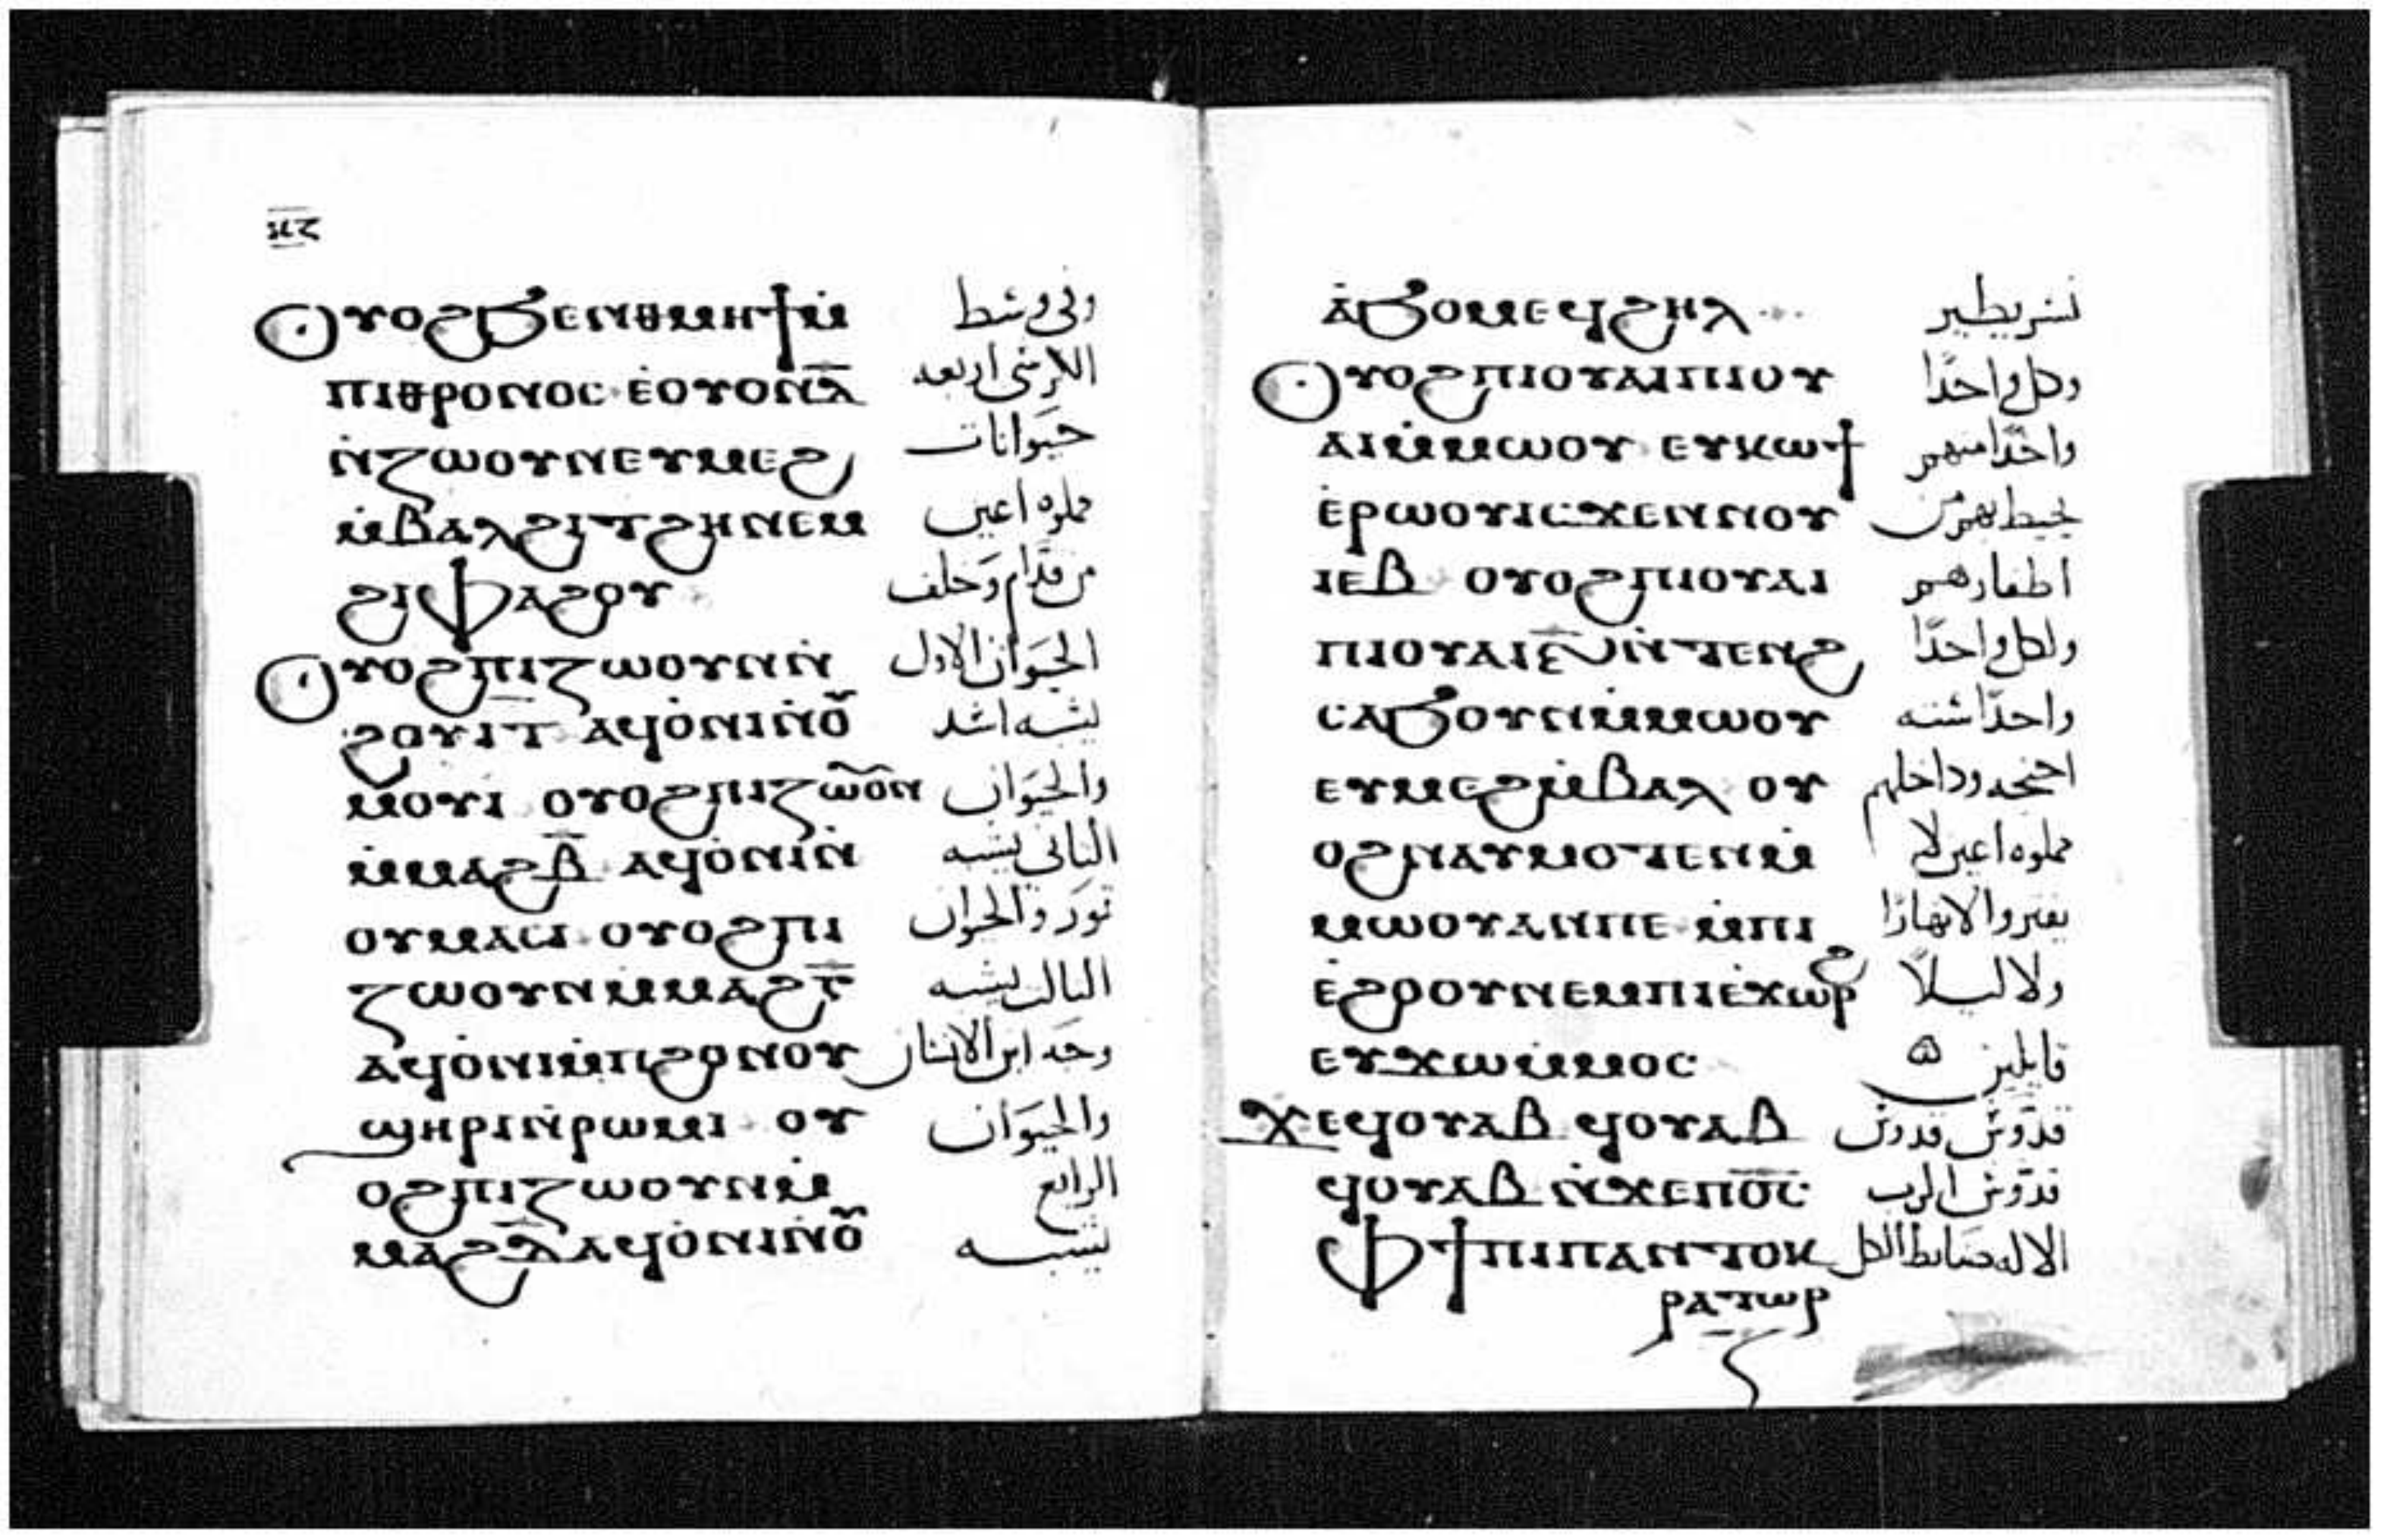 ⲛⲍ
Ⲟⲩⲟϩ ϧⲉⲛ ⲑⲙⲏϯ ⲙ̇ وفي وسط
ⲡⲓⲑⲣⲟⲛⲟⲥ ⲉ̇ⲟⲩⲟⲛ ⲇ̅ الكرسي اربعه
ⲛ̇ⲍⲱⲟⲩⲛ ⲉⲩⲙⲉϩ حيوانات
ⲙ̇ⲃⲁⲗ ϩⲓⲧϩⲏ ⲛⲉⲙ مملوه اعين
ϩⲓⲫⲁϩⲟⲩ من قدام وخلف
Ⲟⲩⲟϩ ⲡⲓⲍⲱⲟⲩⲛ ⲛ̇ الحيوان الاول
ϩⲟⲩⲓⲧ ⲁϥⲟ̇ⲛⲓ ⲛ̇ⲟⲩ يشبه اسد
ⲙⲟⲩⲓ ⲟⲩⲟϩ ⲡⲓⲍⲱⲟⲛ والحيوان
ⲙ̇ⲙⲁϩⲃ̅ ⲁϥⲟ̇ⲛⲓ ⲛ̇ الثاني يشبه
ⲟⲩⲙⲁⲥⲓ ⲟⲩⲟϩ ⲡⲓ ثور والحيوان
ⲍⲱⲟⲩⲛ ⲙ̇ⲙⲁϩⲅ̅ الثالث يشبه
ⲁϥⲟ̇ⲛⲓ ⲙ̇ⲡϩⲟ ⲛⲟⲩ وجه ابن الانسان
ϣⲏⲣⲓ ⲛ̇ⲣⲱⲙⲓ ⲟⲩ والحيوان
ⲟϩ ⲡⲓⲍⲱⲟⲩⲛ ⲙ̇ الرابع
ⲙⲁϩⲇ̅ ⲁϥⲟ̇ⲛⲓ ⲛ̇ⲟⲩ يشبه
ⲁ̇ϧⲟⲙ ⲉϥϩⲏⲗ نسر يطير
Ⲟⲩⲟϩ ⲡⲓⲟⲩⲁⲓ ⲡⲓⲟⲩ وكل واحدًا
ⲁⲓ ⲙ̇ⲙⲱⲟⲩ ⲉⲩⲕⲱϯ واحدًا منهم
ⲉ̇ⲣⲱⲟⲩ ⲓⲥϫⲉⲛ ⲛⲟⲩ يحيط بهم من
ⲓⲉⲃ ⲟⲩⲟϩ ⲡⲓⲟⲩⲁⲓ اظفارهم
ⲡⲓⲟⲩⲁⲓ ⲋ̅ ⲛ̇ⲧⲉⲛϩ ولكل واحدًا
ⲥⲁϧⲟⲩⲛ ⲙ̇ⲙⲱⲟⲩ واحدًا سته
ⲉⲩⲙⲉϩ ⲙ̇ⲃⲁⲗ ⲟⲩ اجنحه وداخلهم
ⲟϩ ⲛⲁⲩⲙⲟⲧⲉⲛ ⲙ̇ مملوه اعين لم
ⲙⲱⲟⲩ ⲁⲛ ⲡⲉ ⲙ̇ⲡⲓ يفتروا لا نهارًا
ⲉ̇ϩⲟⲟⲩ ⲛⲉⲙ ⲡⲓⲉ̇ϫⲱⲣϩ ولا ليلًا
ⲉⲩϫⲱ ⲙ̇ⲙⲟⲥ قايلين
ϫⲉ ϥⲟⲩⲁⲃ ϥⲟⲩⲁⲃ قدوس قدوس
ϥⲟⲩⲁⲃ ⲛ̇ϫⲉ ⲡⲟ̅ⲥ̅ قدوس الرب
ⲫϯ ⲡⲓⲡⲁⲛⲧⲟⲕ الاله ضابط الكل
ⲣⲁⲧⲱⲣ